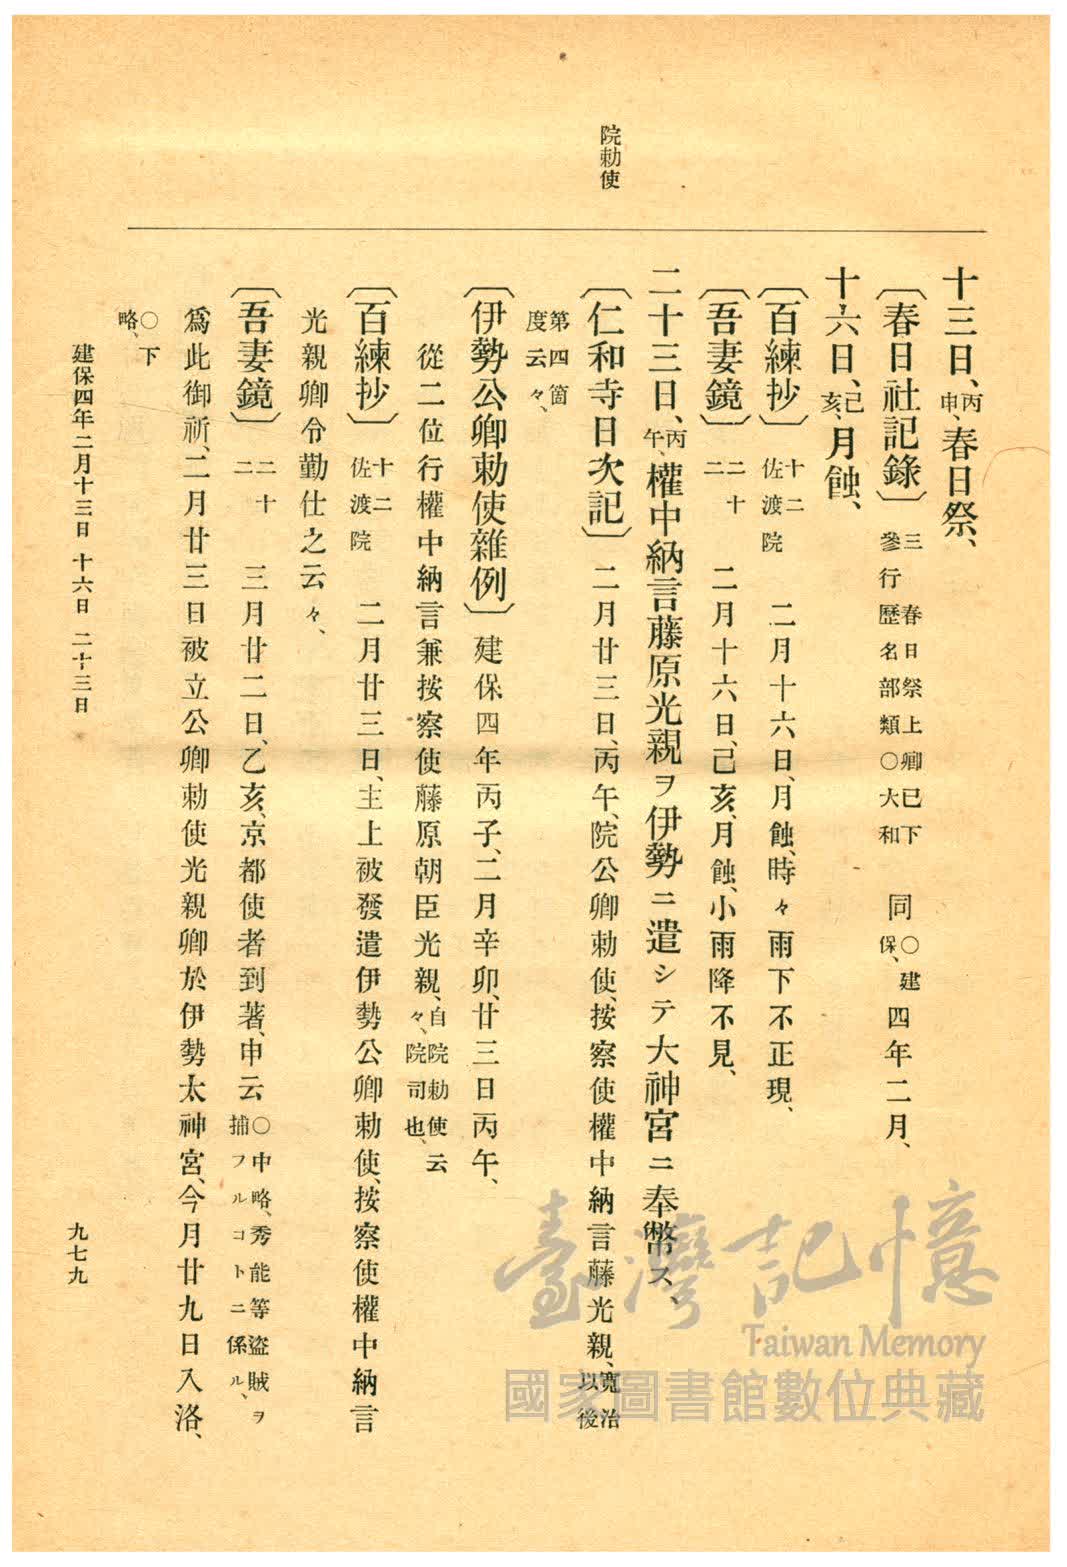 院勅使
十三日、丙申、春日祭、
〔春日社記錄〕三 春日祭上卿已下參行歷名部類○大和 同○建保、四年二月、
十六日、己亥、月蝕、
〔百練抄〕十二佐渡院 二月十六日、月蝕、時々雨下不正現、
〔吾妻鏡〕二十二 二月十六日、己亥、月蝕、小雨降不見、
二十三日、丙午、權中納言藤原光親ヲ伊勢ニ遣シテ大神宮ニ奉幣ス、
〔仁和寺日次記〕二月廿三日、丙午、院公卿勅使、按察使權中納言藤光親、寬治以後
第四箇度云々、
〔伊勢公卿勅使雜例〕建保四年丙子、二月辛卯、廿三日丙午、
從二位行權中納言兼按察使藤原朝臣光親、自院勅使云々、院司也、
〔百練抄〕十二佐渡院 二月廿三日、主上被發遣伊勢公卿勅使、按察使權中納言
光親卿令勤仕之云々、
〔吾妻鏡〕二十二 三月廿二日、乙亥、京都使者到著、申云○中略、秀能等盜賊ヲ捕フルコトニ係ル、
爲此御祈、二月廿三日被立公卿勅使光親卿於伊勢太神宮、今月廿九日入洛、
○下略、
建保四年二月十三日 十六日 二十三日
九七九
臺灣記憶
Taiwan Memory
國家圖書館數位典藏